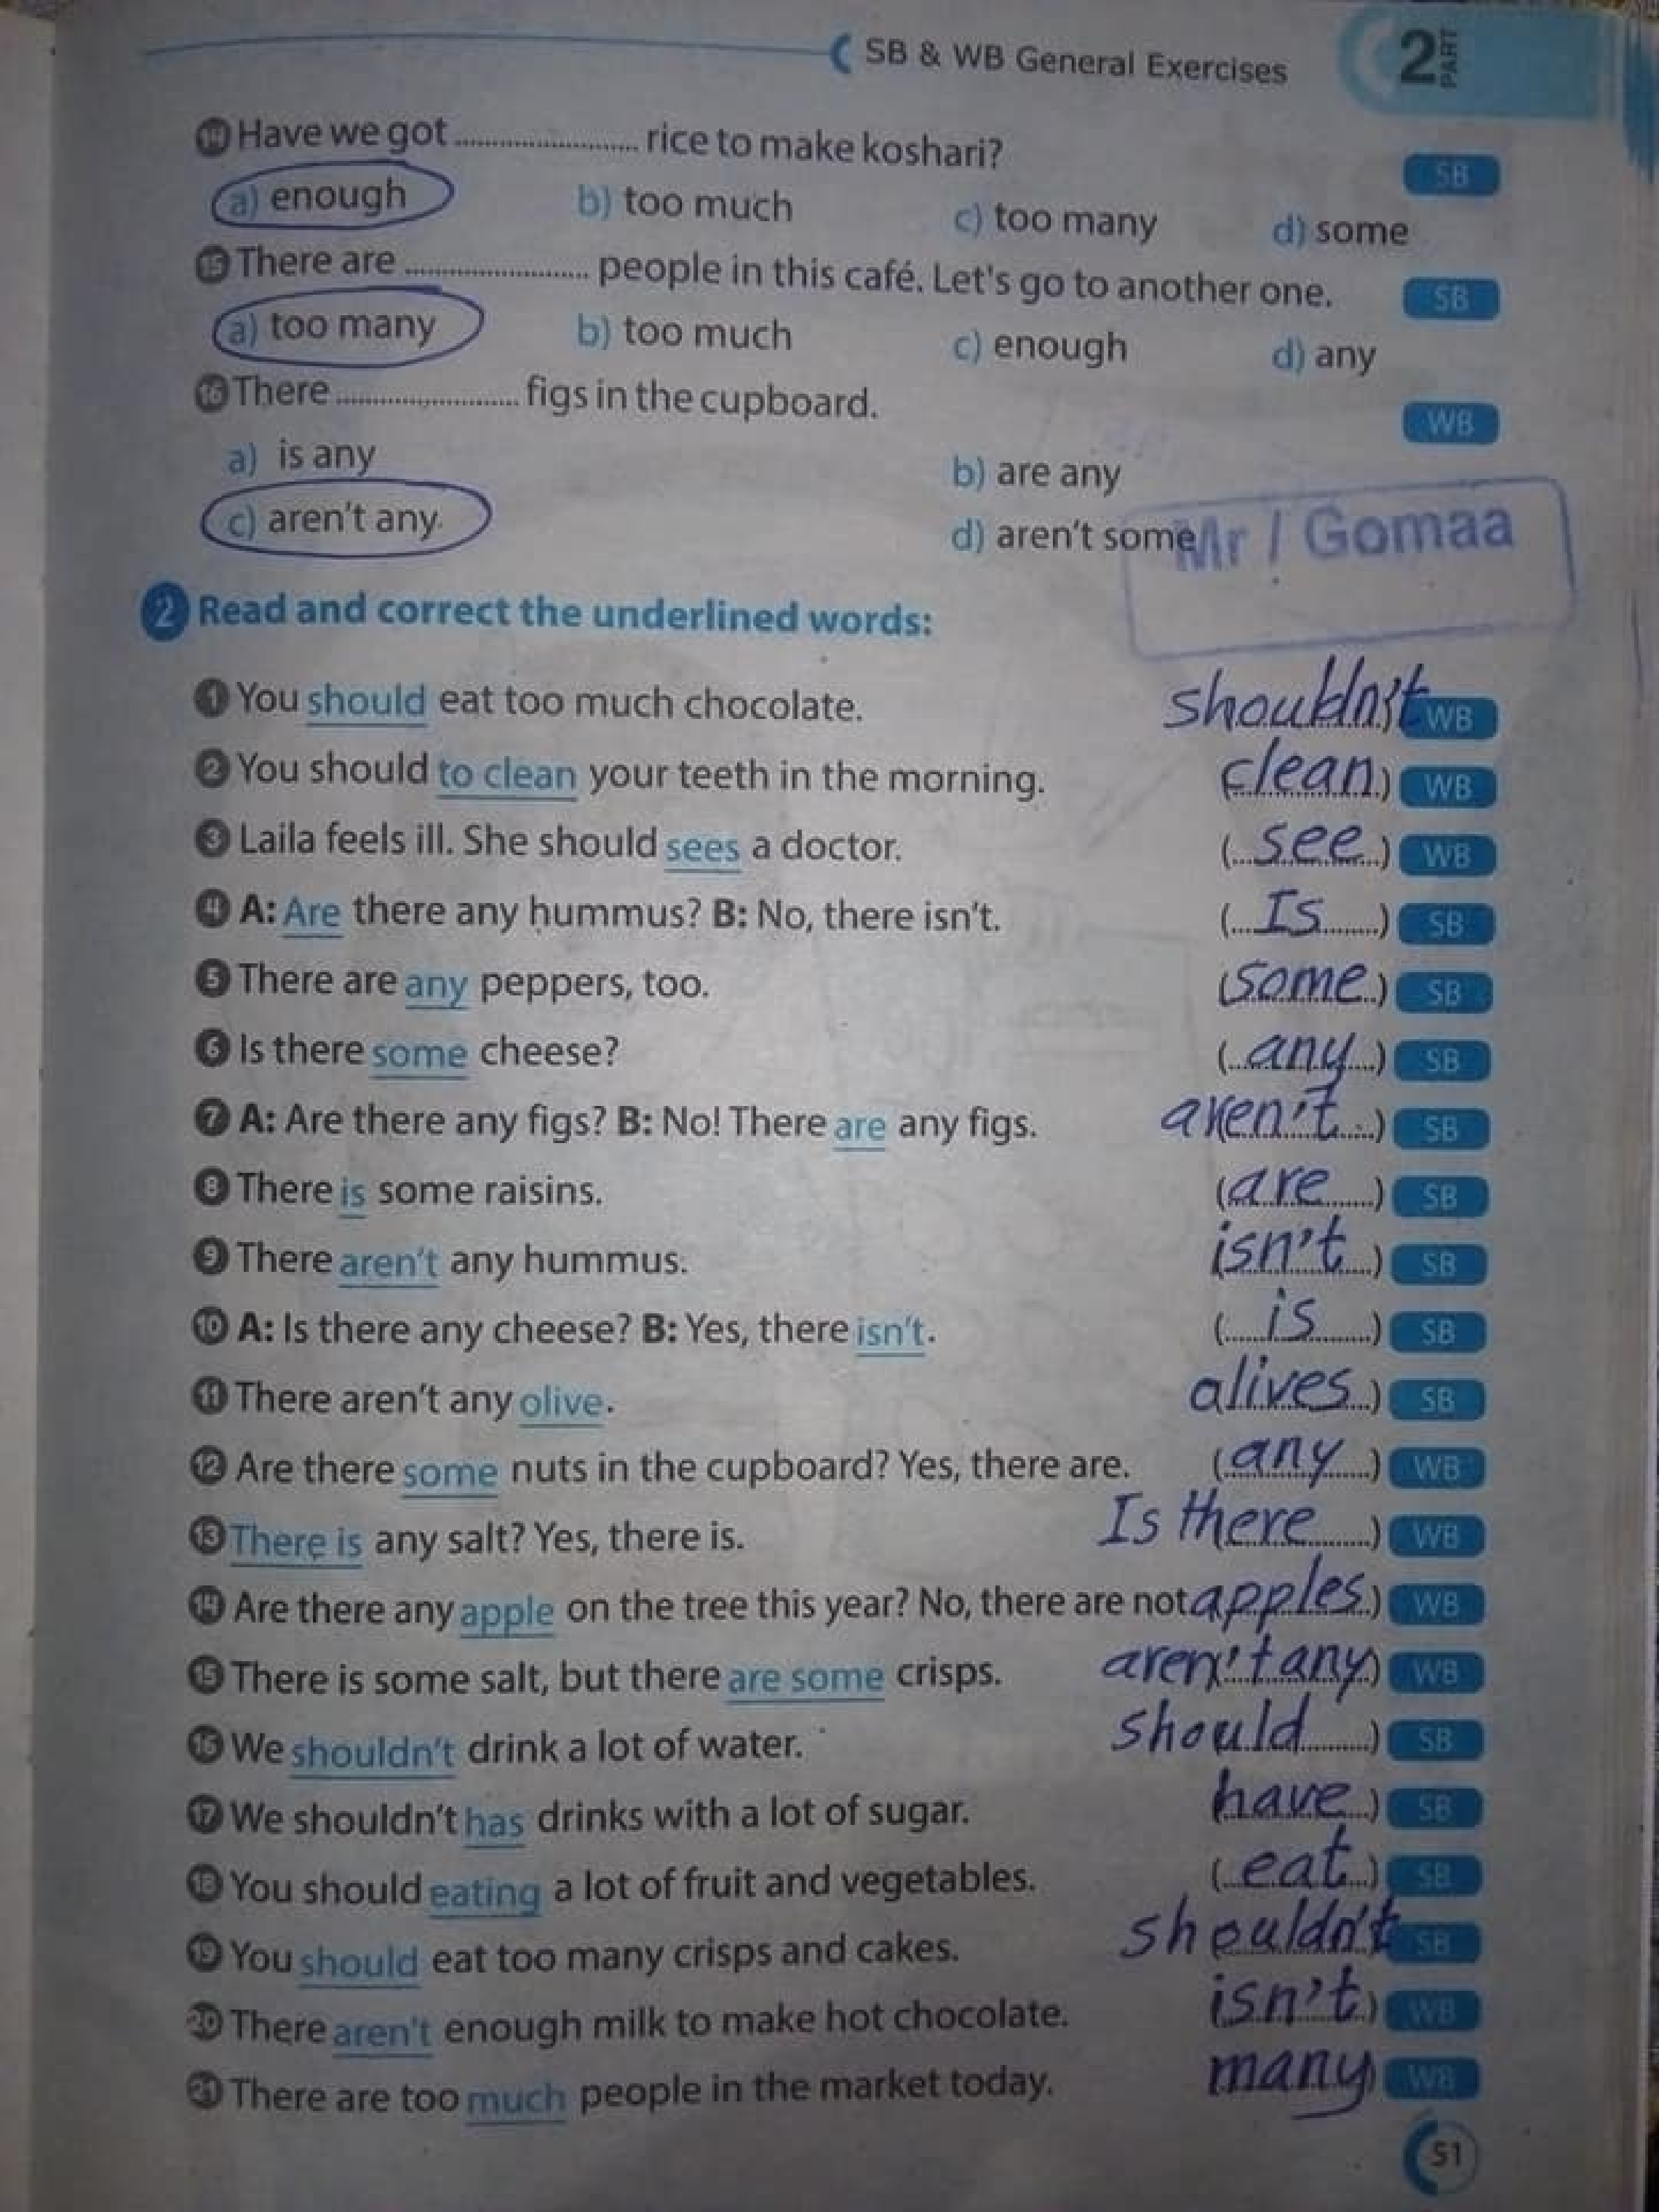 SB & WB General Exercises
2 PART
14 Have we got .................... rice to make koshari? SB
a) enough b) too much c) too many d) some
15 There are .................... people in this café. Let's go to another one. SB
a) too many b) too much c) enough d) any
16 There .................... figs in the cupboard. WB
a) is any b) are any
c) aren't any d) aren't some
Mr / Gomaa
2 Read and correct the underlined words:
1 You should eat too much chocolate. shouldn't WB
2 You should to clean your teeth in the morning. clean WB
3 Laila feels ill. She should sees a doctor. (see) WB
4 A: Are there any hummus? B: No, there isn't. (Is) SB
5 There are any peppers, too. (some) SB
6 Is there some cheese? (any) SB
7 A: Are there any figs? B: No! There are any figs. aren't) SB
8 There is some raisins. (are) SB
9 There aren't any hummus. (isn't) SB
10 A: Is there any cheese? B: Yes, there isn't. (is) SB
11 There aren't any olive. alives) SB
12 Are there some nuts in the cupboard? Yes, there are. (any) WB
13 There is any salt? Yes, there is. Is there) WB
14 Are there any apple on the tree this year? No, there are not. apples) WB
15 There is some salt, but there are some crisps. aren't any) WB
16 We shouldn't drink a lot of water. should) SB
17 We shouldn't has drinks with a lot of sugar. have) SB
18 You should eating a lot of fruit and vegetables. (eat) SB
19 You should eat too many crisps and cakes. shouldn't SB
20 There aren't enough milk to make hot chocolate. isn't) WB
21 There are too much people in the market today. many) WB
51